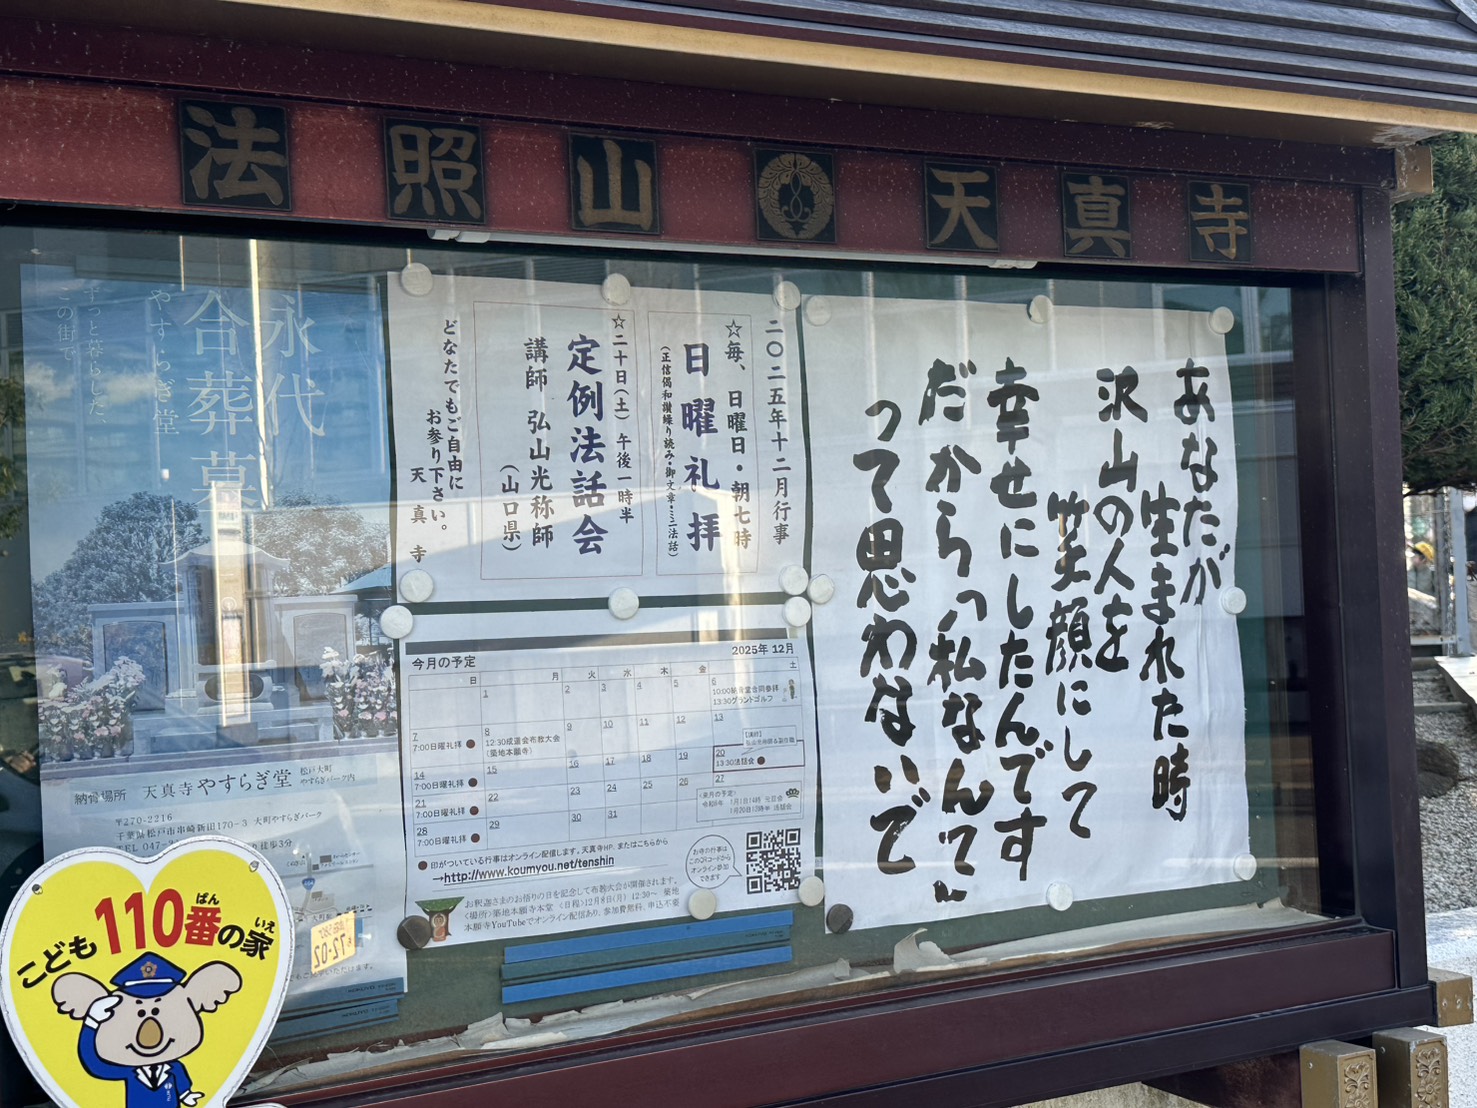 法照山 天真寺
あなたが
生まれた時
沢山の人を
笑顔にして
幸せにしたんです
だから「私なんて」
って思わないで
二〇二五年十二月行事
☆毎、日曜日・朝七時
日曜礼拝
(正信偈和讃繰り読み・御文章・ミニ法話)
☆二十日(土)午後一時半
定例法話会
講師 弘山光称師
(山口県)
どなたでもご自由に
お参り下さい。
天真寺
永代
合葬墓
やすらぎ堂
ずっと暮らした、
この街で
納骨場所 天真寺やすらぎ堂 松戸大町
やすらぎパーク内
〒270-2216
千葉県松戸市串崎新田170-3 大町やすらぎパーク
今月の予定
2025年 12月
日 月 火 水 木 金 土
1 2 3 4 5 6
13:30グランドゴルフ
7 8 9 10 11 12 13
7:00日曜礼拝
12:30成道会布教大会
(築地本願寺)
14 15 16 17 18 19 20
7:00日曜礼拝
13:30法話会
21 22 23 24 25 26 27
7:00日曜礼拝
28 29 30 31
7:00日曜礼拝
印がついている行事はオンライン配信します。天真寺HP、またはこちらから
→http://www.koumyou.net/tenshin
お寺の行事は
このQRコードから
オンライン参加
できます
お釈迦さまのお悟りの日を記念して布教大会が開催されます。
〈場所〉築地本願寺本堂 〈日程〉12月8日(月) 12:30~ 築地
本願寺YouTubeでオンライン配信あり、参加費無料、申込不要
こども110番の家
ばん
いえ
12-02